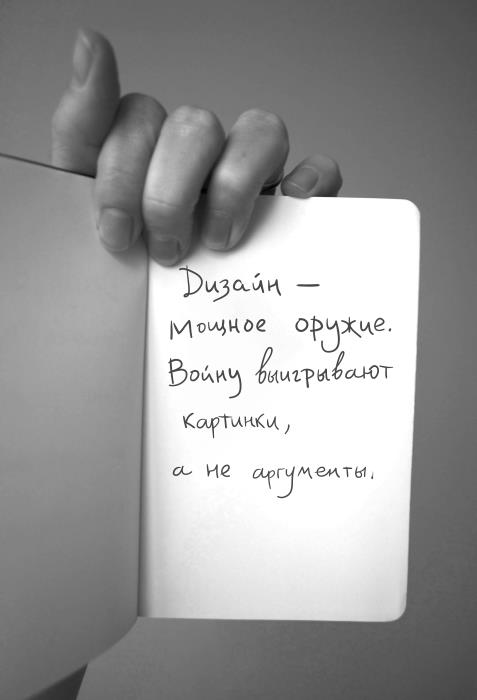 Дизайн —
мощное оружие.
Войну выигрывают
картинки,
а не аргументы.